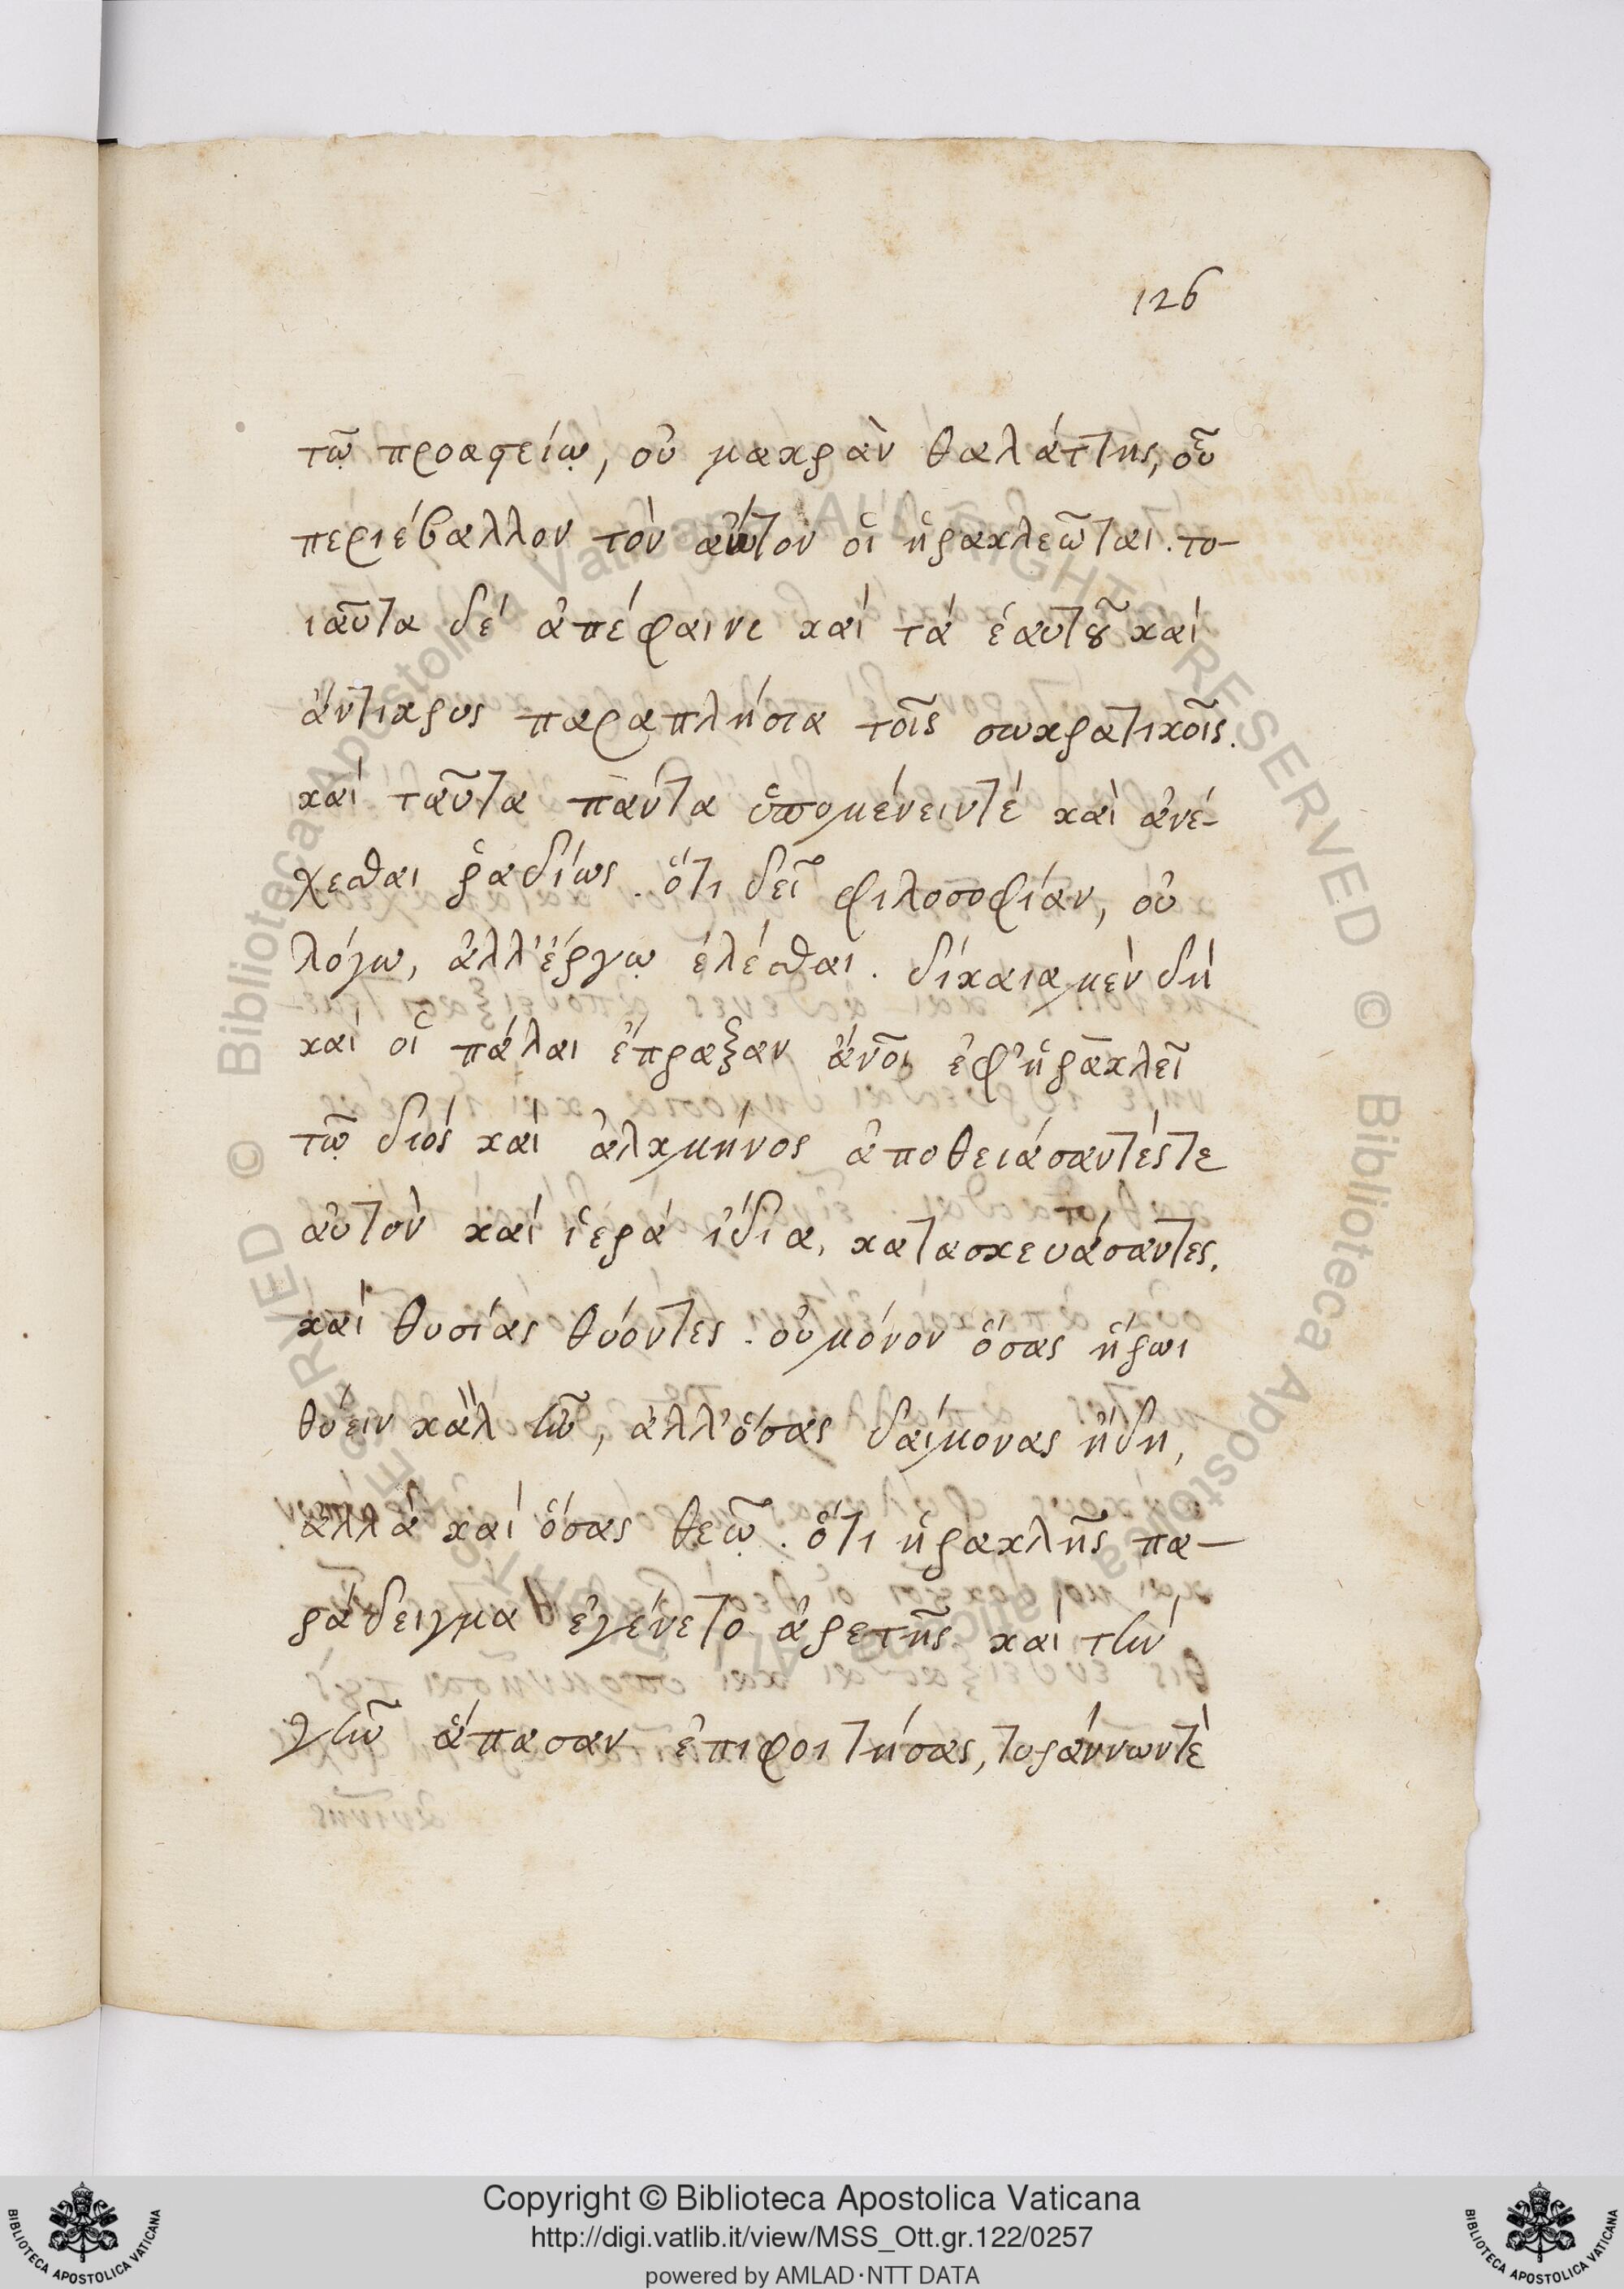 126
τῷ προαστείῳ, οὐ μακρὰν θαλάττης, οὗ
περιέβαλλον τὸν αὐτὸν οἱ ἡρακλεῶται. το-
ιαῦτα δέ ἀπέφαινε καί τά ἑαυτοῦ καί
ἄντικρυς παραπλήσια τοῖς σωκρατικοῖς.
καί ταῦτα πάντα ὑπομένειντέ καὶ ἀνέ-
χεσθαι ῥαδίως. ὅτι δεῖ φιλοσοφίαν, οὐ
λόγω, ἀλλ' ἔργῳ ἑλέσθαι. δίκαια μὲν δὴ
καί οἱ πάλαι ἔπραξαν ἄνοι ἐφ' ἡρακλεῖ
τῷ διός καὶ ἀλκμήνος ἀποθειάσαντέςτε
αὐτὸν καί ἱερά ἴδια, κατασκευάσαντες,
καί θυσίας θύοντες. οὐ μόνον ὅσας ἥρωι
θύειν καλ τῶ, ἀλλ' ὅσας δαίμονας ἤδη,
ἀλλά καί ὅσας θεῷ. ὅτι ἡρακλῆς πα-
ράδειγμα ἐγένετο ἀρετῆς καί τὴν
γῆν ἅπασαν ἐπιφοιτήσας, τυράννωντὲ
Copyright © Biblioteca Apostolica Vaticana
http://digi.vatlib.it/view/MSS_Ott.gr.122/0257
powered by AMLAD·NTT DATA